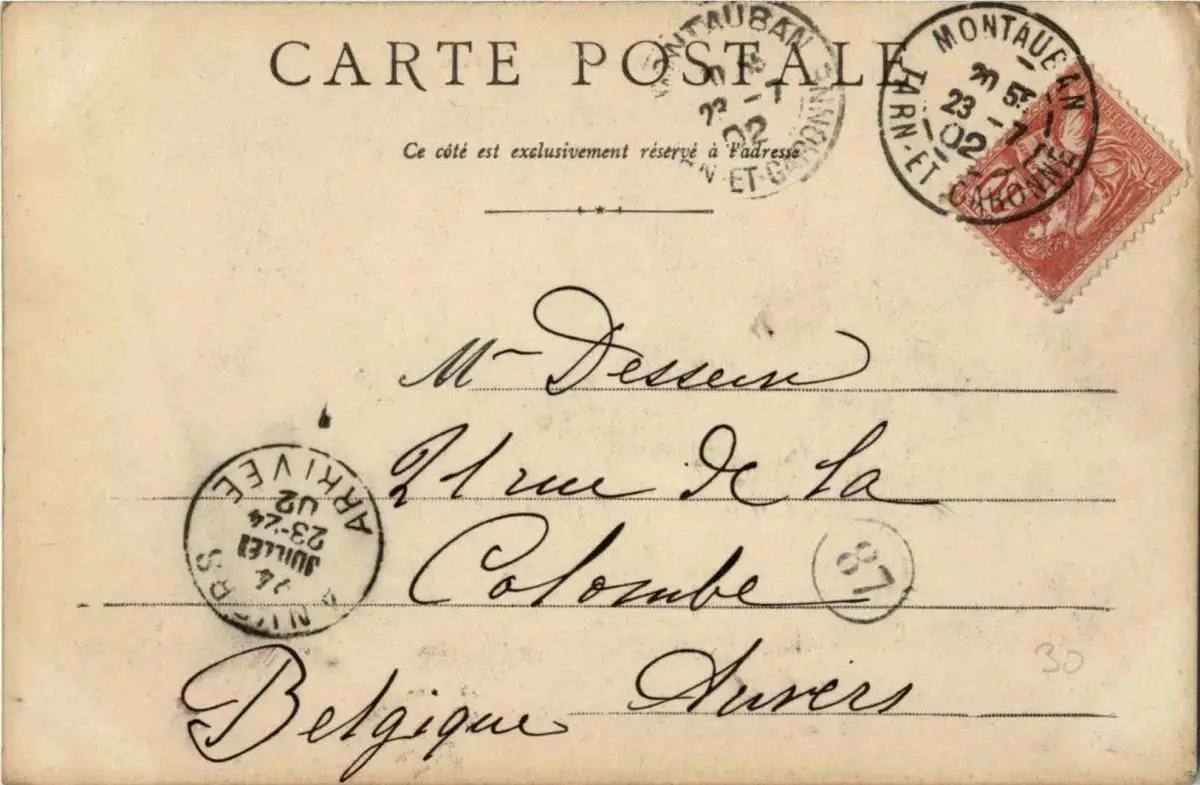 CARTE POSTALE
Ce côté est exclusivement réservé à l'adresse
MONTAUBAN
23 -7
02
N-ET-GARONNE
MONTAUBAN
20 55
23 -7
02
TARN-ET-GARONNE
Mr Dessein
21 rue de la
Colombe
Anvers
Belgique
ANVERS
JUILLET
23-24
02
ARRIVEE
87
30